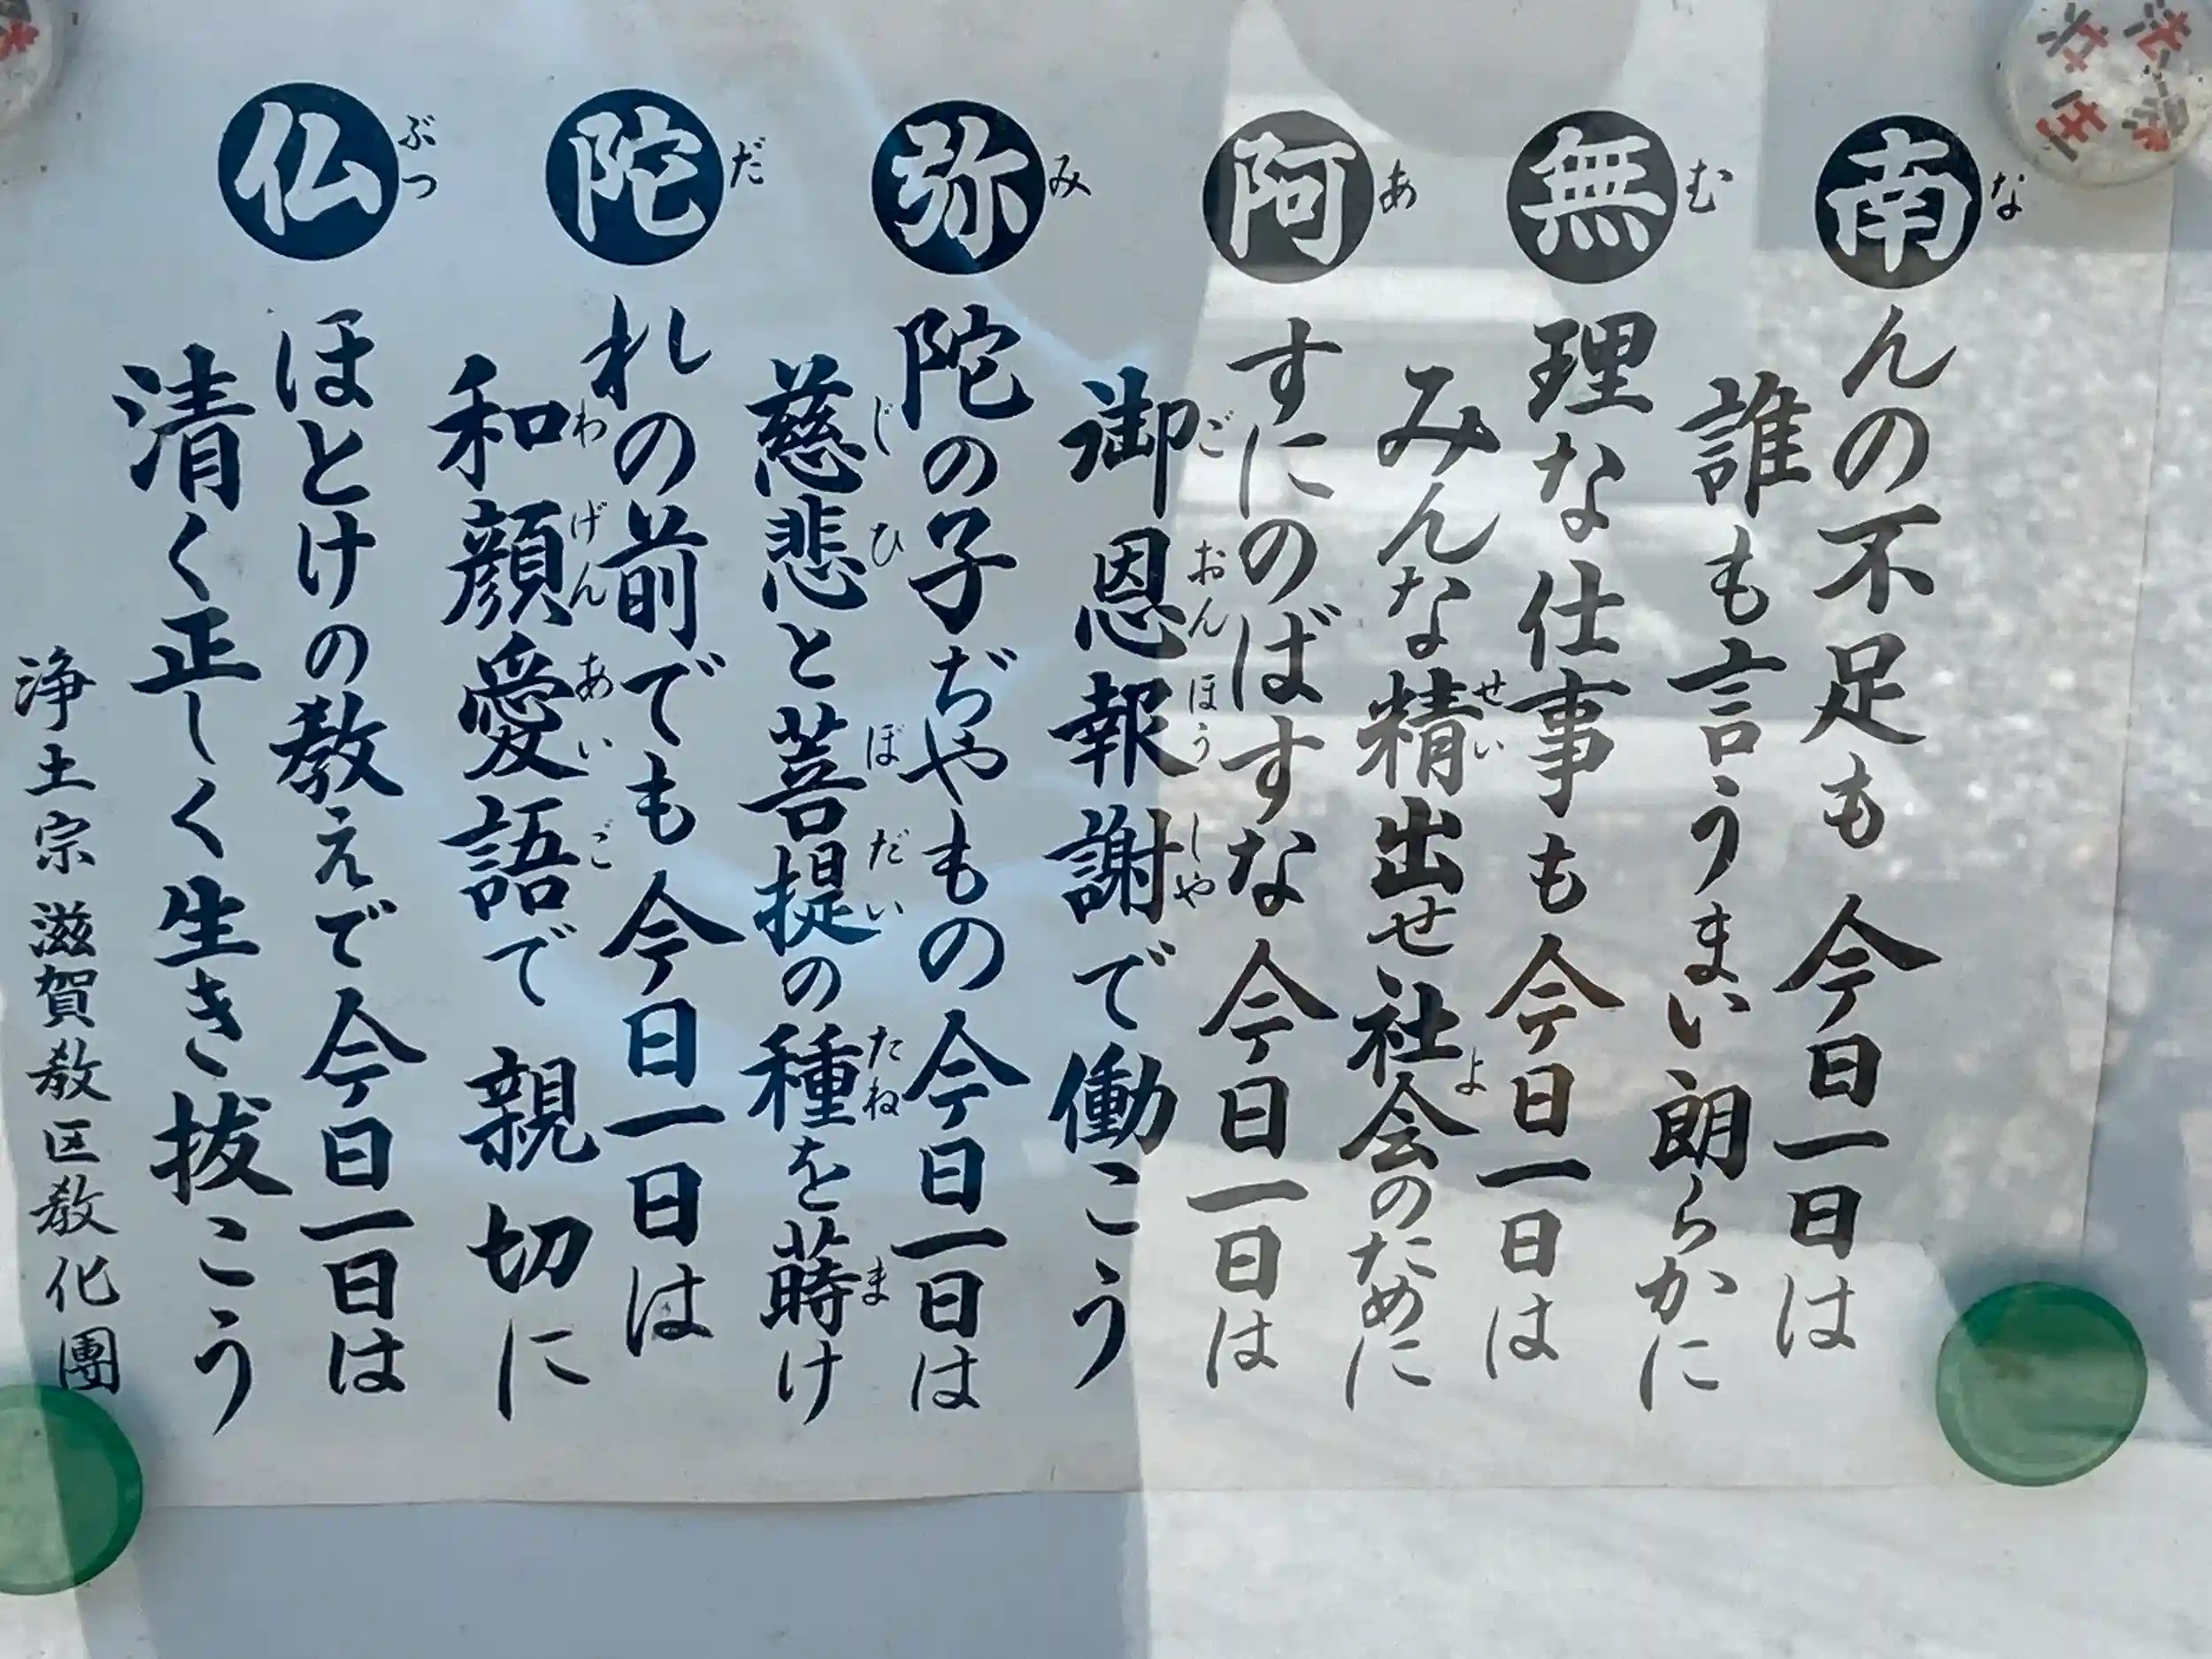 南んの不足も今日一日は
誰も言うまい朗らかに
無理な仕事も今日一日は
みんな精出せ社会のために
阿すにのばすな今日一日は
御恩報謝で働こう
弥陀の子ぢやもの今日一日は
慈悲と菩提の種を蒔け
陀れの前でも今日一日は
和顔愛語で親切に
仏ほとけの教えで今日一日は
清く正しく生き抜こう
浄土宗滋賀教区教化團